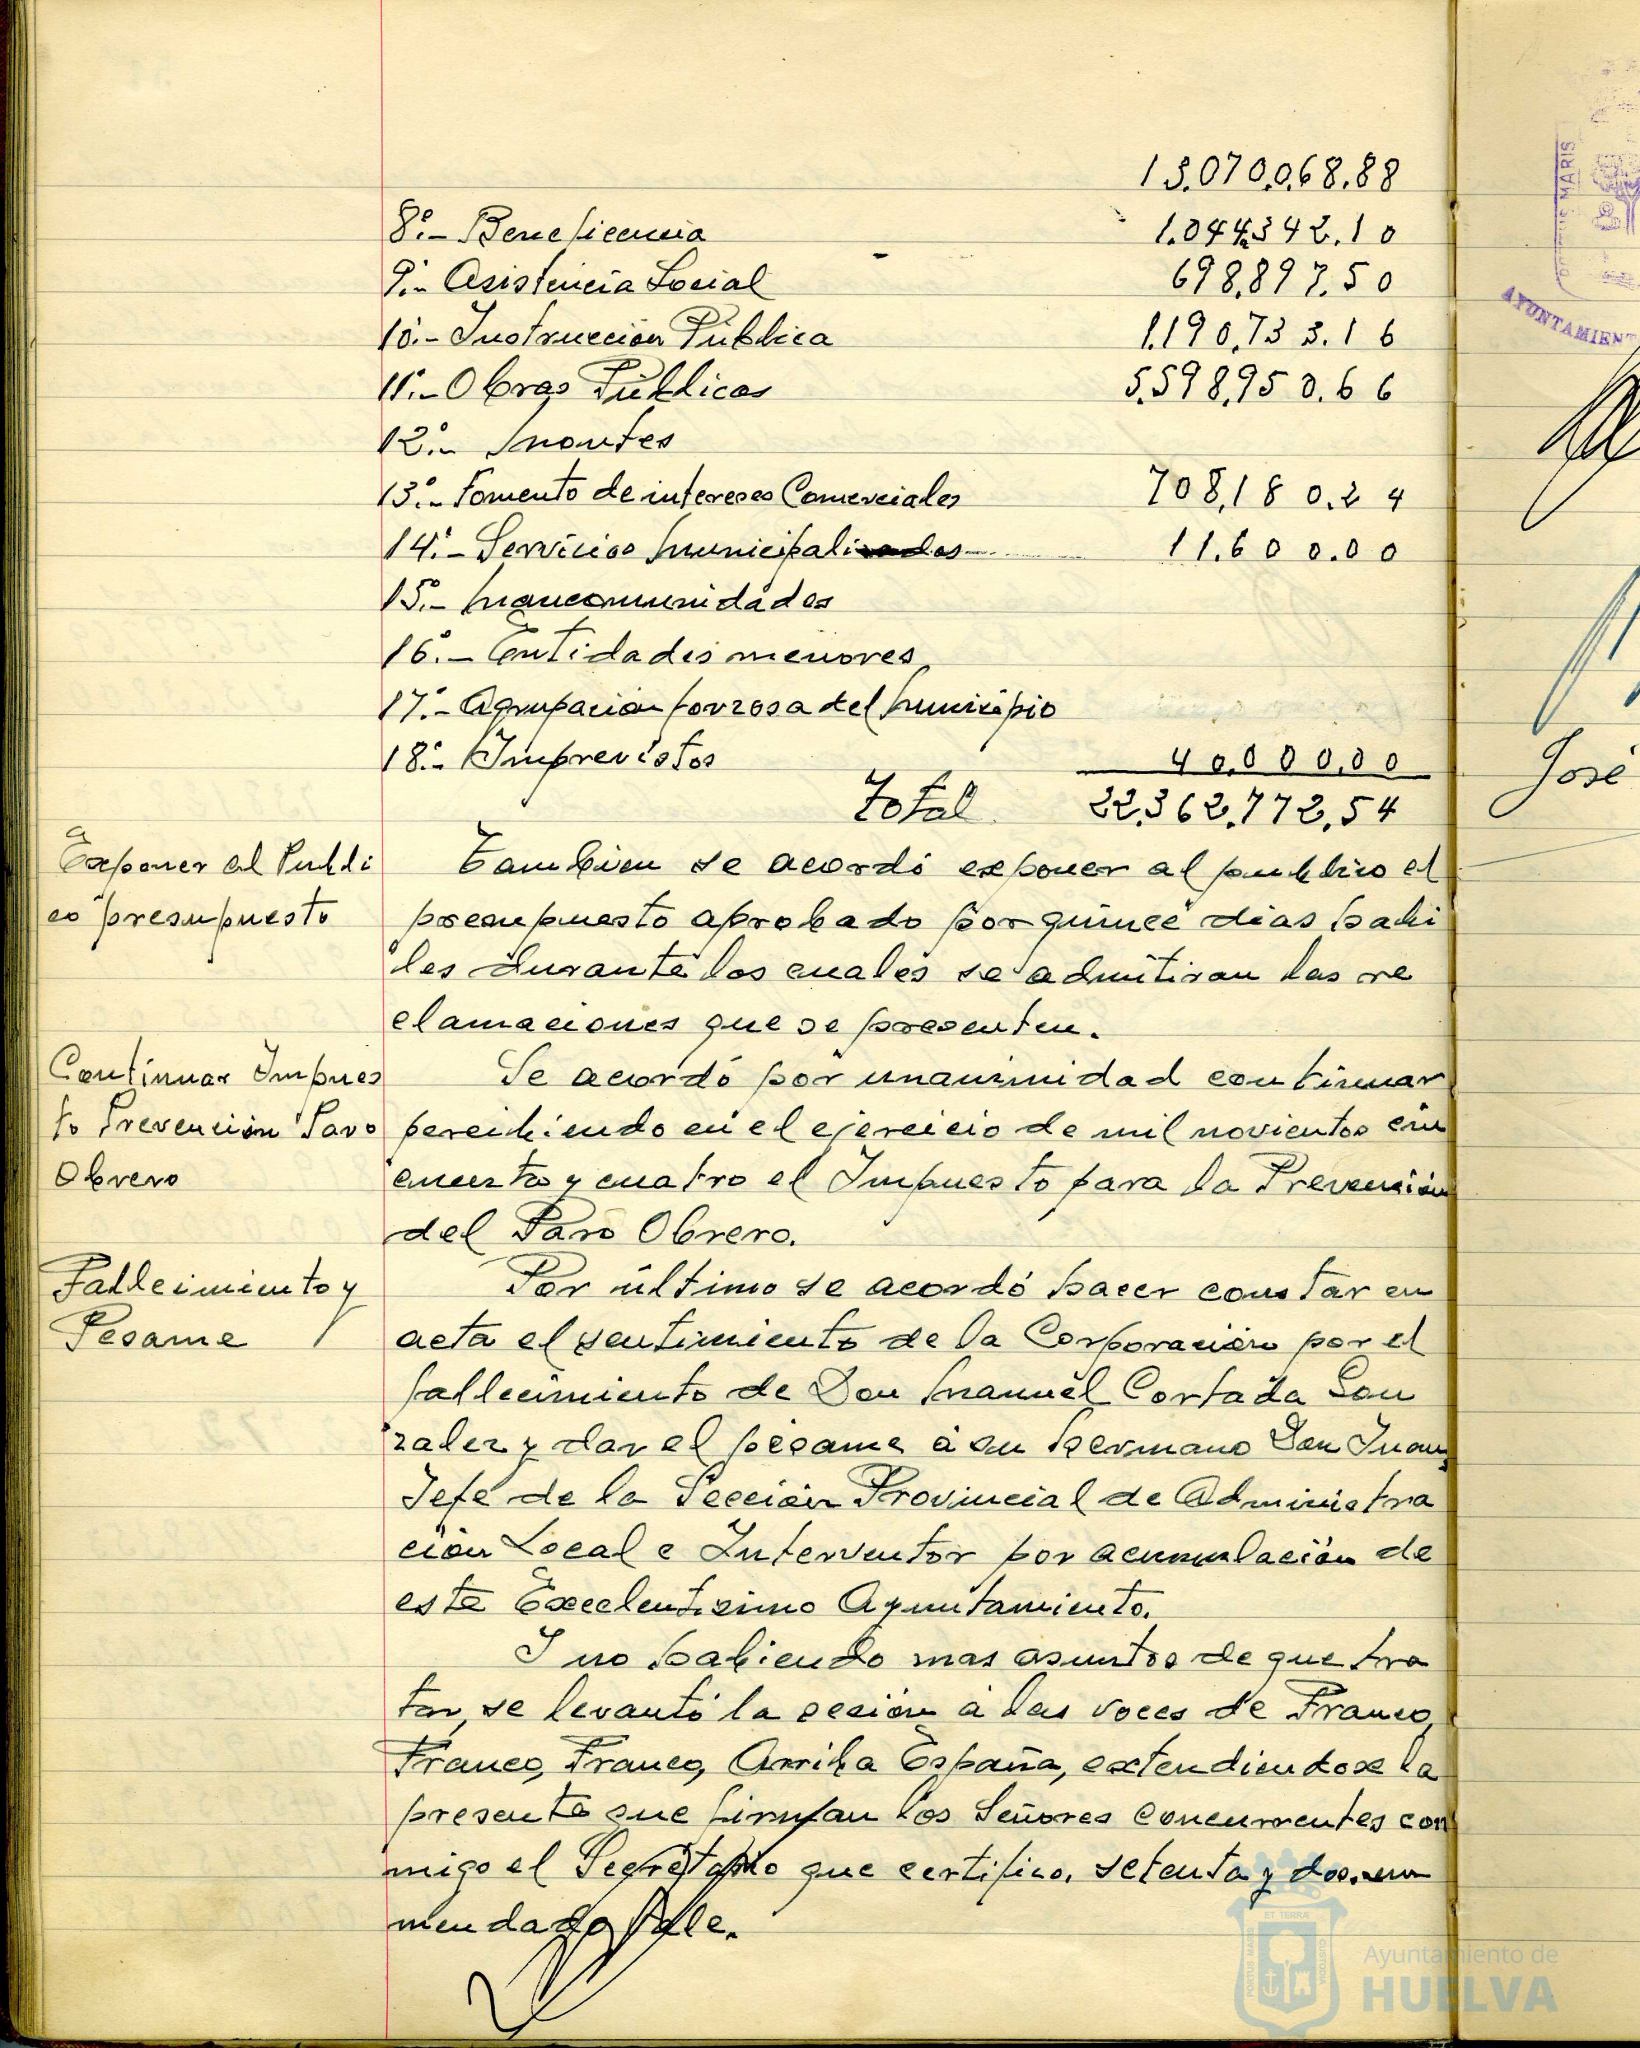 13.070.068.88
8º.- Beneficencia 1.044.342.10
9º.- Asistencia Social 698.897.50
10º.- Instrucción Pública 1.190.733.16
11º.- Obras Públicas 5.598.950.66
12º.- Montes
13º.- Fomento de intereses Comerciales 708.180.24
14º.- Servicios Municipalizados 11.600.00
15º.- Mancomunidades
16º.- Entidades menores
17º.- Agrupación forzosa del Municipio
18º.- Imprevistos 40.000.00
Total 22.362.772.54
Exponer al Públi
co presupuesto
Tambien se acordó exponer al publico el
presupuesto aprobado por quince dias habi
les durante los cuales se admitiran las re
clamaciones que se presenten.
Continuar Impues
to Prevención Paro
Obrero
Se acordó por unanimidad continuar
percibiendo en el ejercicio de mil novientos cin
cuenta y cuatro el Impuesto para la Prevención
del Paro Obrero.
Fallecimiento y
Pesame
Por último se acordó hacer constar en
acta el sentimiento de la Corporación por el
fallecimiento de Don Manuel Cortada Gon
zalez y dar el pésame a su hermano Don Juan,
Jefe de la Sección Provincial de Administra
ción Local e Interventor por acumulación de
este Excelentisimo Ayuntamiento.
I no habiendo mas asuntos de que tra
tar, se levantó la sesión a las voces de Franco,
Franco, Franco, Arriba España, extendiendose la
presente que firman los Señores concurrentes con
migo el Secretario que certifico. setenta y dos. en
mendado Vale.
AYUNTAMIENT
MARIS
José
Ayuntamiento de
HUELVA